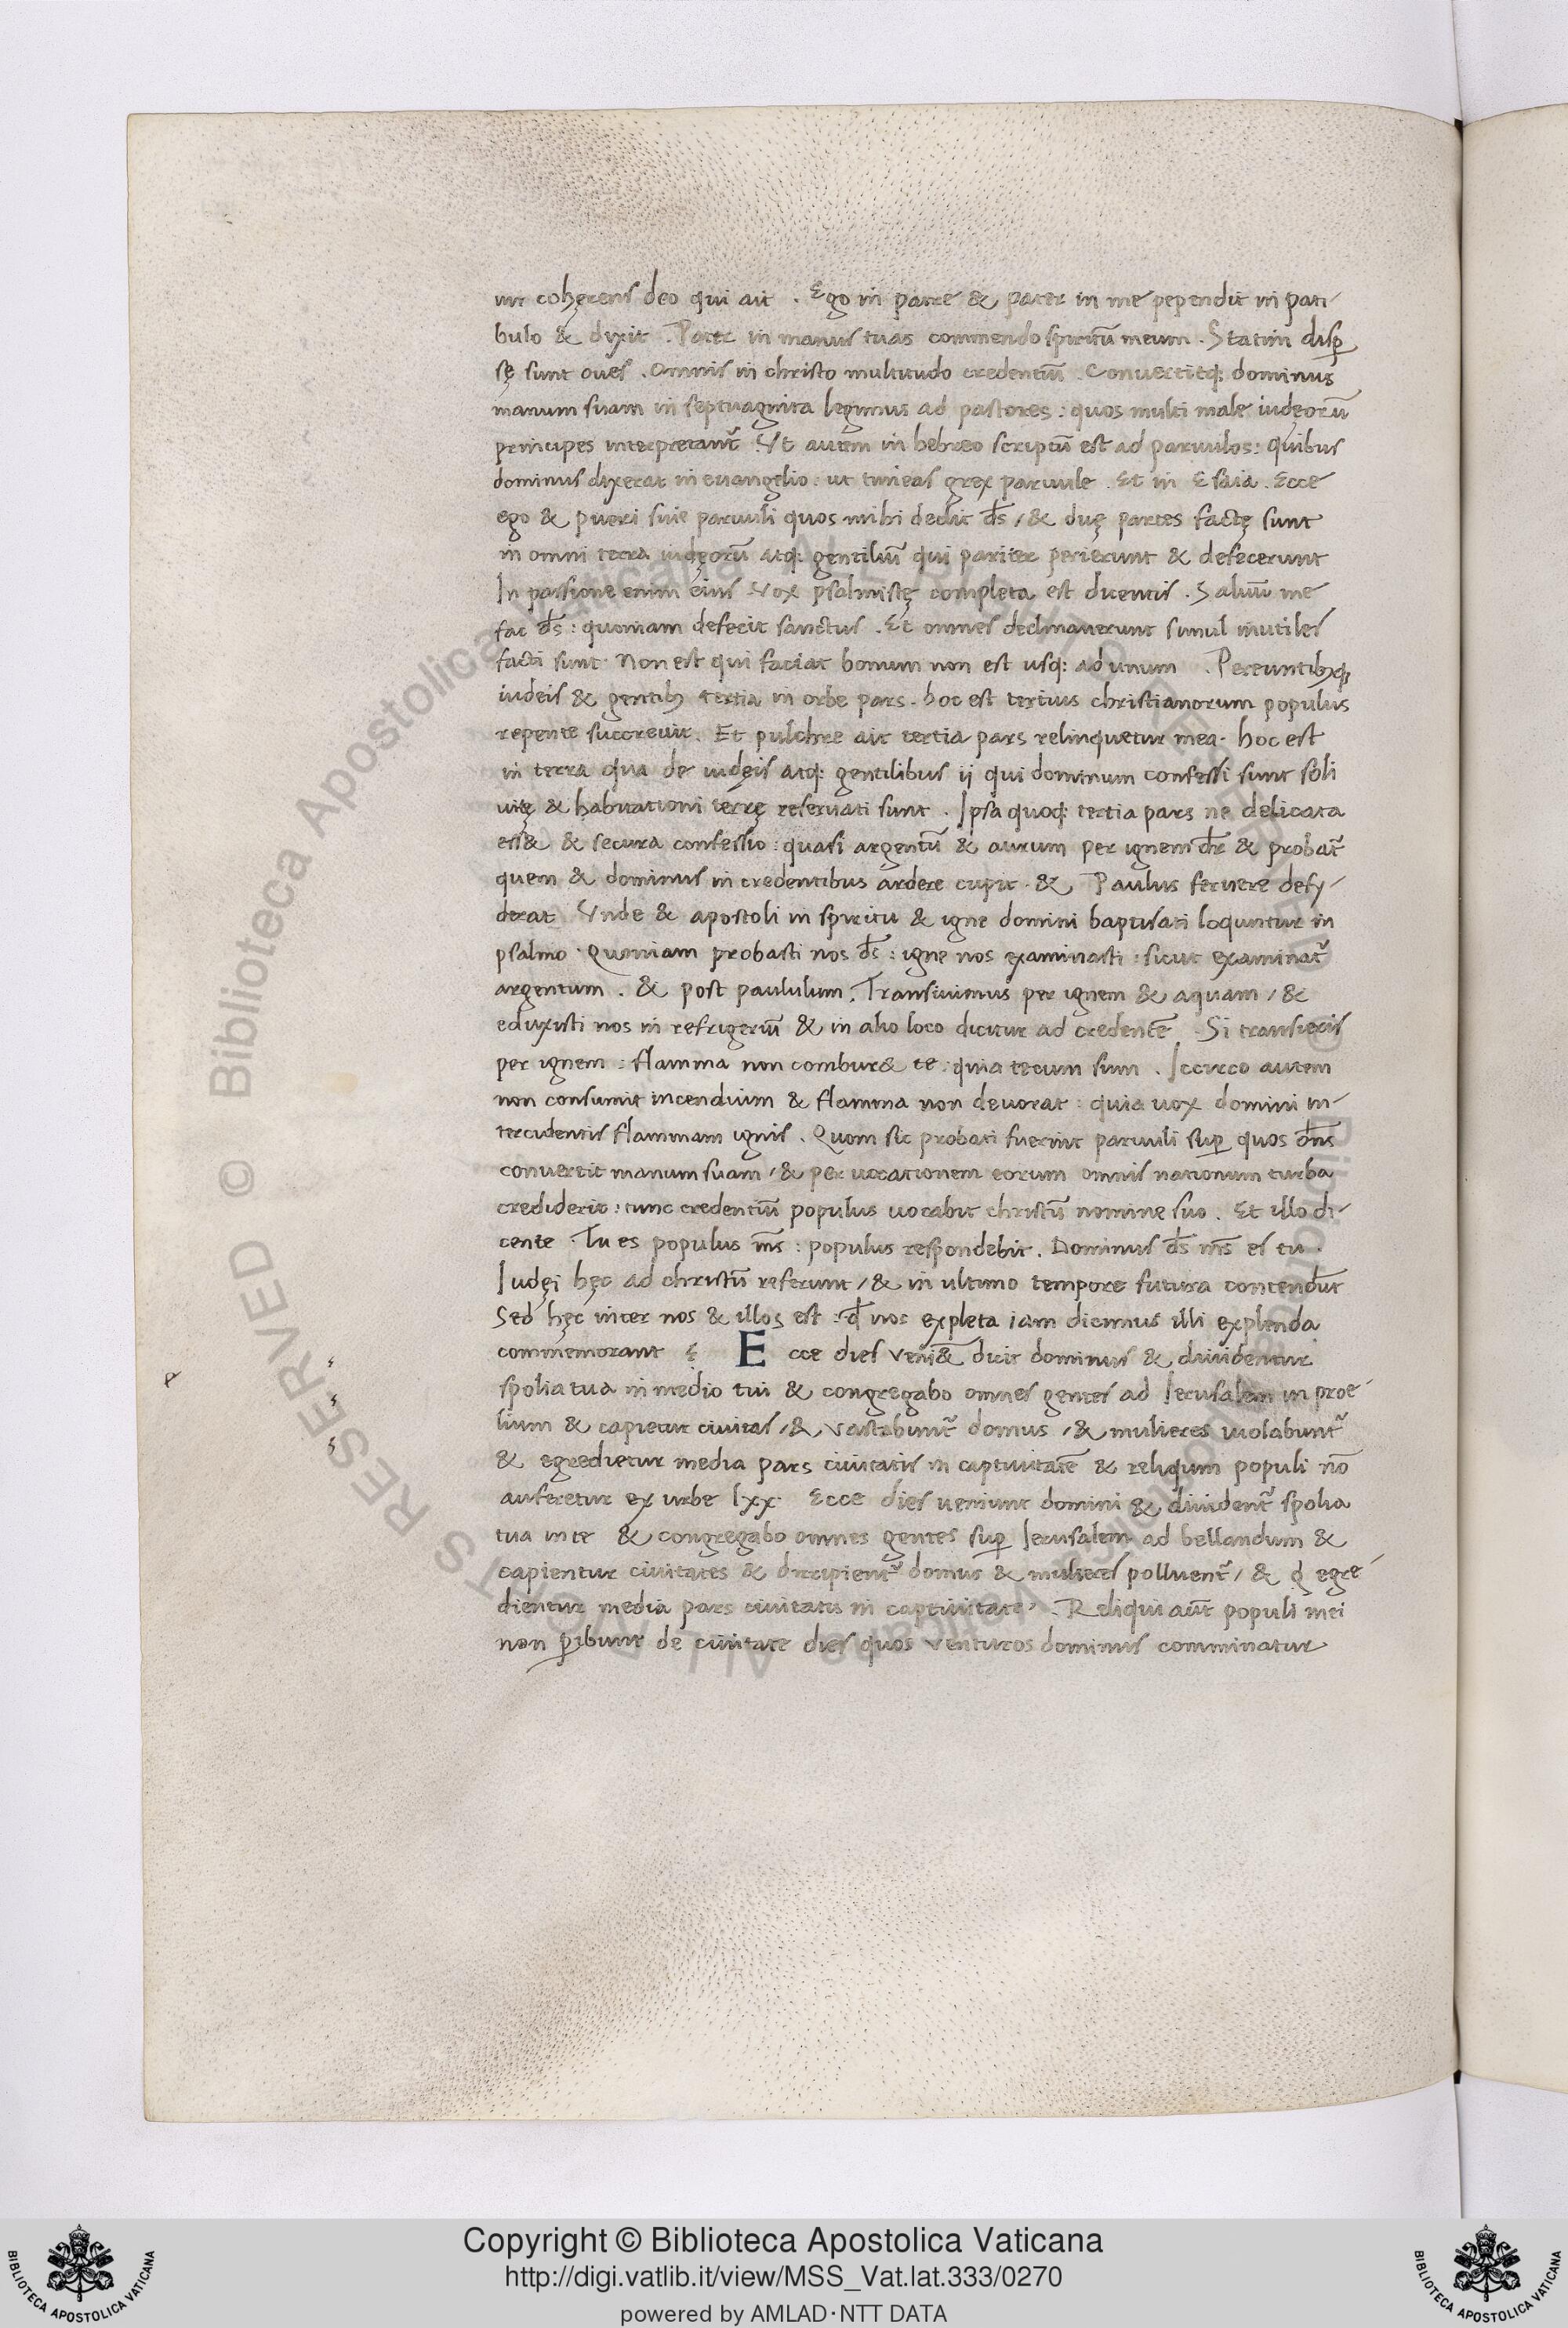 uir cohęrens deo qui ait . Ego in patre & pater in me pependit in pati-
bulo & dixit . Pater in manus tuas commendo spiritū meum . Statim disp̱
sę sunt oues . omnis in christo multitudo credentiū . Conuertitq; dominus
manum suam in septuaginta legimus ad pastores : quos multi male iudęorū
principes interpretant̄ . Vt autem in hebreo scriptū est ad paruulos : quibus
dominus dixerat in euangelio : ut timeas grex paruule . Et in Esaia . Ecce
ego & pueri siue paruuli quos mihi dedit d̄s / & duę partes factę sunt
in omni terra iudęorū atq; gentiliū qui pariter perierunt & defecerunt
In passione enim eius vox psalmistę completa est dicentis . Saluū me
fac d̄s : quoniam defecit sanctus . Et omnes declinauerunt simul inutiles
facti sunt . Non est qui faciat bonum non est usq; ad unum . Pereuntib;q;
iudeis & gentib; tertia in orbe pars . hoc est tertius christianorum populus
repente succreuit . Et pulchre ait tertia pars relinquetur in ea . hoc est
in terra qua de iudęis atq; gentilibus ij qui dominum confessi sunt soli
uitę & habitationi terrę reseruati sunt . Ipsa quoq; tertia pars ne delicata
ess& & secura confessio : quasi argentū & aurum per ignem d̄r & probat̄
quem & dominus in credentibus ardere cupit . & Paulus feruere desy-
derat Vnde & apostoli in spiritu & igne domini baptisati loquntur in
psalmo . Quoniam probasti nos d̄s : igne nos examinasti : sicut examinat̄
argentum . & post paululum . Transiuimus per ignem & aquam / &
eduxisti nos in refrigeriū & in alio loco dicitur ad credentē . Si transieris
per ignem : flamma non combur& te : quia tecum sum . Iccirco autem
non consumit incendium & flamma non deuorat : quia uox domini in-
tercidentis flammam ignis . Quom sic probati fuerint paruuli sup̱ quos d̄ns
conuertit manum suam / & per uocationem eorum omnis nationum turba
crediderit : tunc credentiū populus uocabit christū nomine suo . Et illo di-
cente . Tu es populus m̄s : populus respondebit . Dominus d̄s m̄s es tu .
Iudęi hęc ad christū referunt / & in ultimo tempore futura contend̄ut
Sed hęc inter nos & illos est : q̄d nos expleta iam dicimus illi explenda
commemorant Ecce dies veni& dicit dominus & diuidentur
spolia tua in medio tui & congregabo omnes gentes ad Ierusalem in proe-
lium & capietur ciuitas / & vastabunt̄ domus / & mulieres uiolabunt̄
& egredietur media pars ciuitatis in captiuitatē & reliqum populi nō
auferetur ex urbe lxx . Ecce dies ueniunt domini & diuident̄ spolia
tua in te & congregabo omnes gentes sup̱ Ierusalem ad bellandum &
capientur ciuitates & diripient̄ domus & mulieres polluent̄ / & egre-
dientur media pars ciuitatis in captiuitate . Reliqui aūt populi mei
non p̱ibunt de ciuitate dies quos venturos dominus comminatur
Copyright © Biblioteca Apostolica Vaticana
http://digi.vatlib.it/view/MSS_Vat.lat.333/0270
powered by AMLAD·NTT DATA